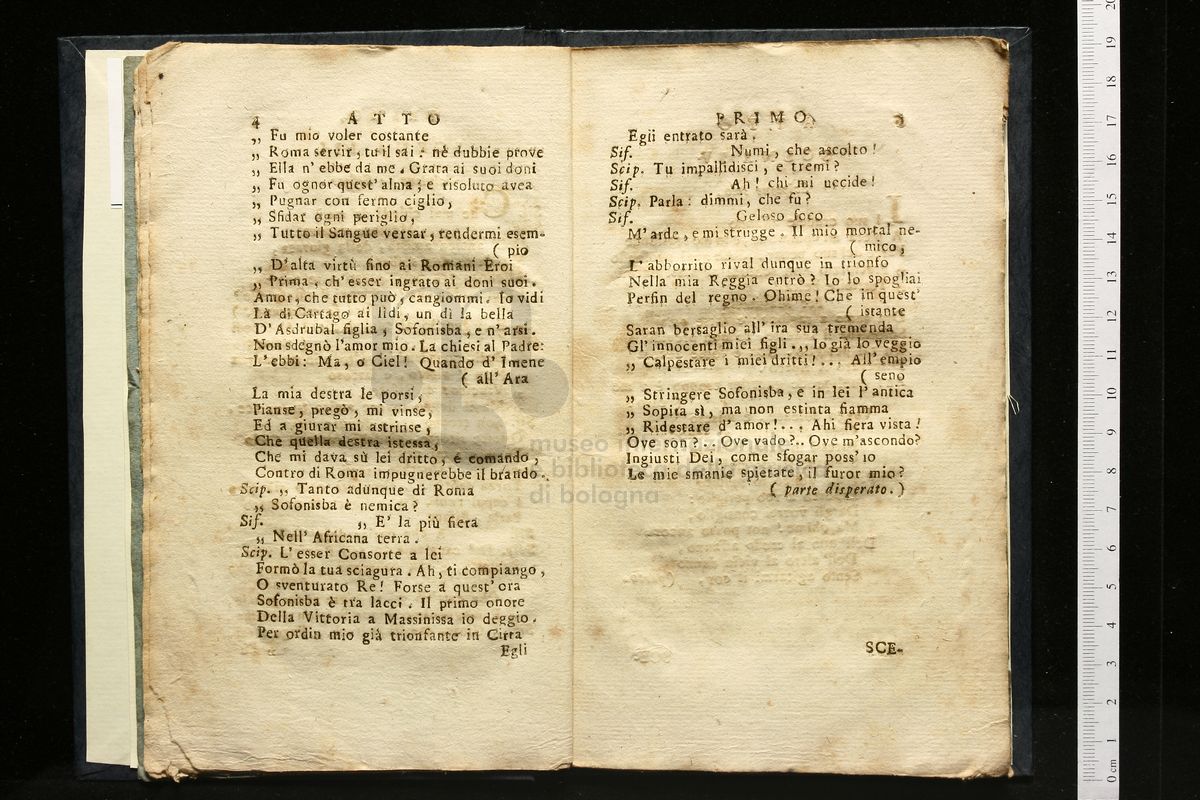 4 ATTO
„ Fu mio voler costante
„ Roma servir, tu il sai: nè dubbie prove
„ Ella n' ebbe da me. Grata ai suoi doni
„ Fu ognor quest' alma; e risoluto avea
„ Pugnar con fermo ciglio,
„ Sfidar ogni periglio,
„ Tutto il Sangue versar, rendermi esem-
( pio
„ D'alta virtù fino ai Romani Eroi
„ Prima, ch' esser ingrato ai doni suoi.
Amor, che tutto può, cangiommi. Io vidi
Là di Cartago ai lidi, un dì la bella
D' Asdrubal figlia, Sofonisba, e n' arsi.
Non sdegnò l'amor mio. La chiesi al Padre:
L' ebbi: Ma, o Ciel! Quando d' Imene
( all' Ara
La mia destra le porsi,
Pianse, pregò, mi vinse,
Ed a giurar mi astrinse,
Che quella destra istessa,
Che mi dava sù lei dritto, e comando,
Contro di Roma impugnerebbe il brando.
Scip. „ Tanto adunque di Roma
„ Sofonisba è nemica?
Sif. „ E' la più fiera
„ Nell' Africana terra.
Scip. L' esser Consorte a lei
Formò la tua sciagura. Ah, ti compiango,
O sventurato Re! Forse a quest' ora
Sofonisba è tra lacci. Il primo onore
Della Vittoria a Massinissa io deggio.
Per ordin mio già trionfante in Cirta
Egli
PRIMO.
Egli entrato sarà.
Sif. Numi, che ascolto!
Scip. Tu impallidisci, e tremi?
Sif. Ah! chi mi uccide!
Scip. Parla: dimmi, che fu?
Sif. Geloso foco
M' arde, e mi strugge. Il mio mortal ne-
( mico,
L' abborrito rival dunque in trionfo
Nella mia Reggia entrò? Io lo spogliai
Perfin del regno. Ohime! Che in quest'
( istante
Saran bersaglio all' ira sua tremenda
Gl' innocenti miei figli. „ Io già lo veggio
„ Calpestare i miei dritti!... All' empio
( seno
„ Stringere Sofonisba, e in lei l' antica
„ Sopita sì, ma non estinta fiamma
„ Ridestare d' amor!... Ahi fiera vista!
Ove son?.. Ove vado?.. Ove m' ascondo?
Ingiusti Dei, come sfogar poss' io
Le mie smanie spietate, il furor mio?
( parte disperato. )
SCE-
di bologna
0 cm 1 2 3 4 5 6 7 8 9 10 11 12 13 14 15 16 17 18 19 20